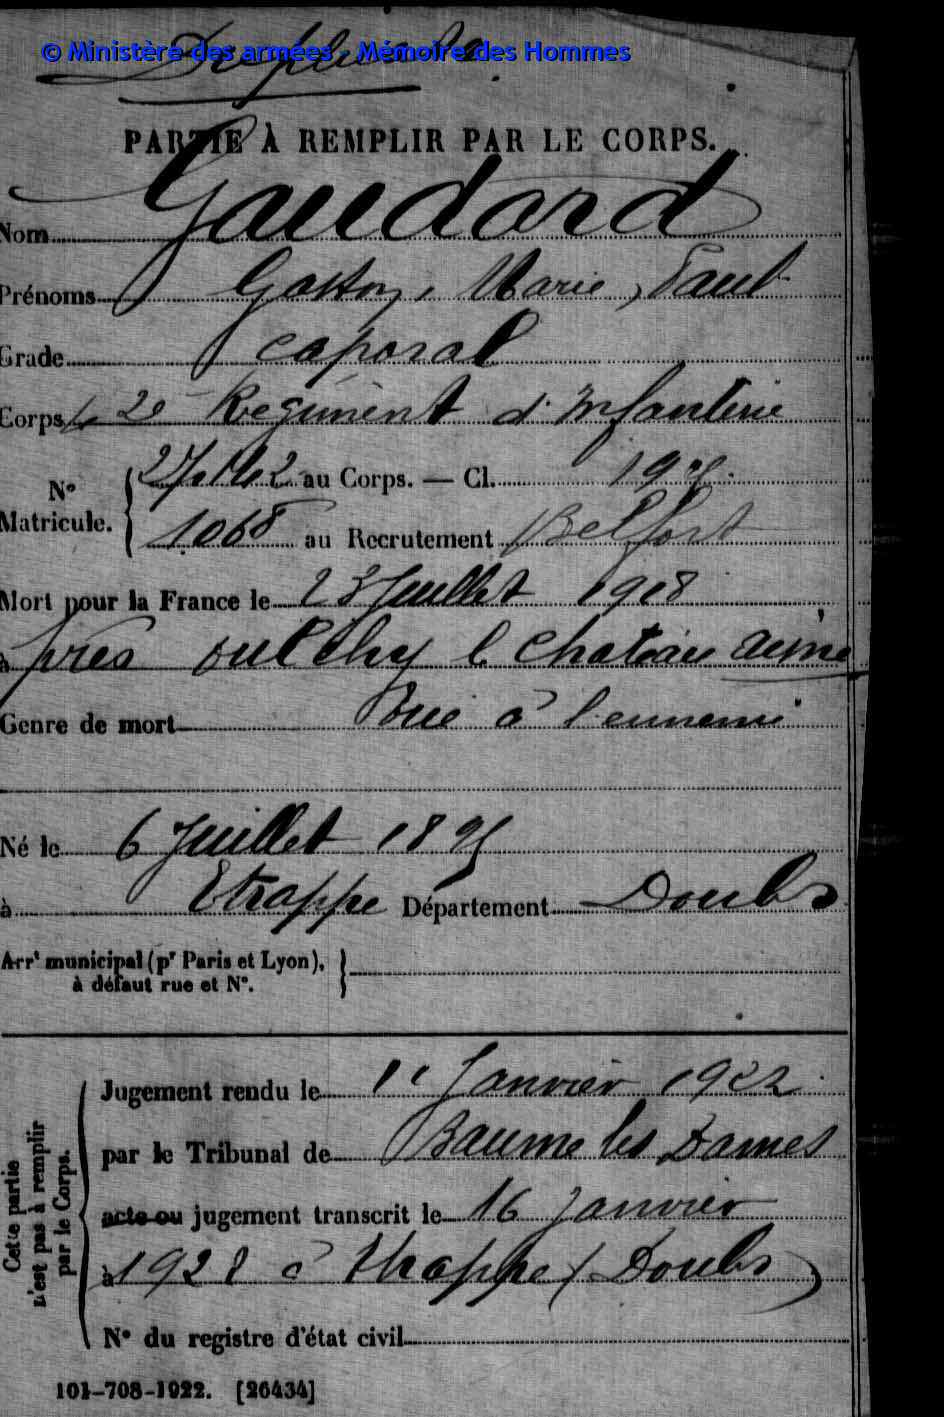 © Ministère des armées - Mémoire des Hommes
PARTIE À REMPLIR PAR LE CORPS.
Nom Gaudard
Prénoms Gaston, Marie, Paul
Grade caporal
Corps Régiment d'Infanterie
N° Matricule. au Corps. — Cl.
1068 au Recrutement Belfort
Mort pour la France le 23 Juillet 1918
à près oulchy le chateau aisne
Genre de mort Tué à l'ennemi
Né le 6 Juillet 1895
à Etrappe Département Doubs
Arrt municipal (pr Paris et Lyon),
à défaut rue et N°.
Cette partie
n'est pas à remplir
par le Corps.
Jugement rendu le 11 Janvier 1922
par le Tribunal de Baume les Dames
acte ou jugement transcrit le 16 Janvier
à 1922 à Etrappe (Doubs)
N° du registre d'état civil
101-708-1922. [26434]